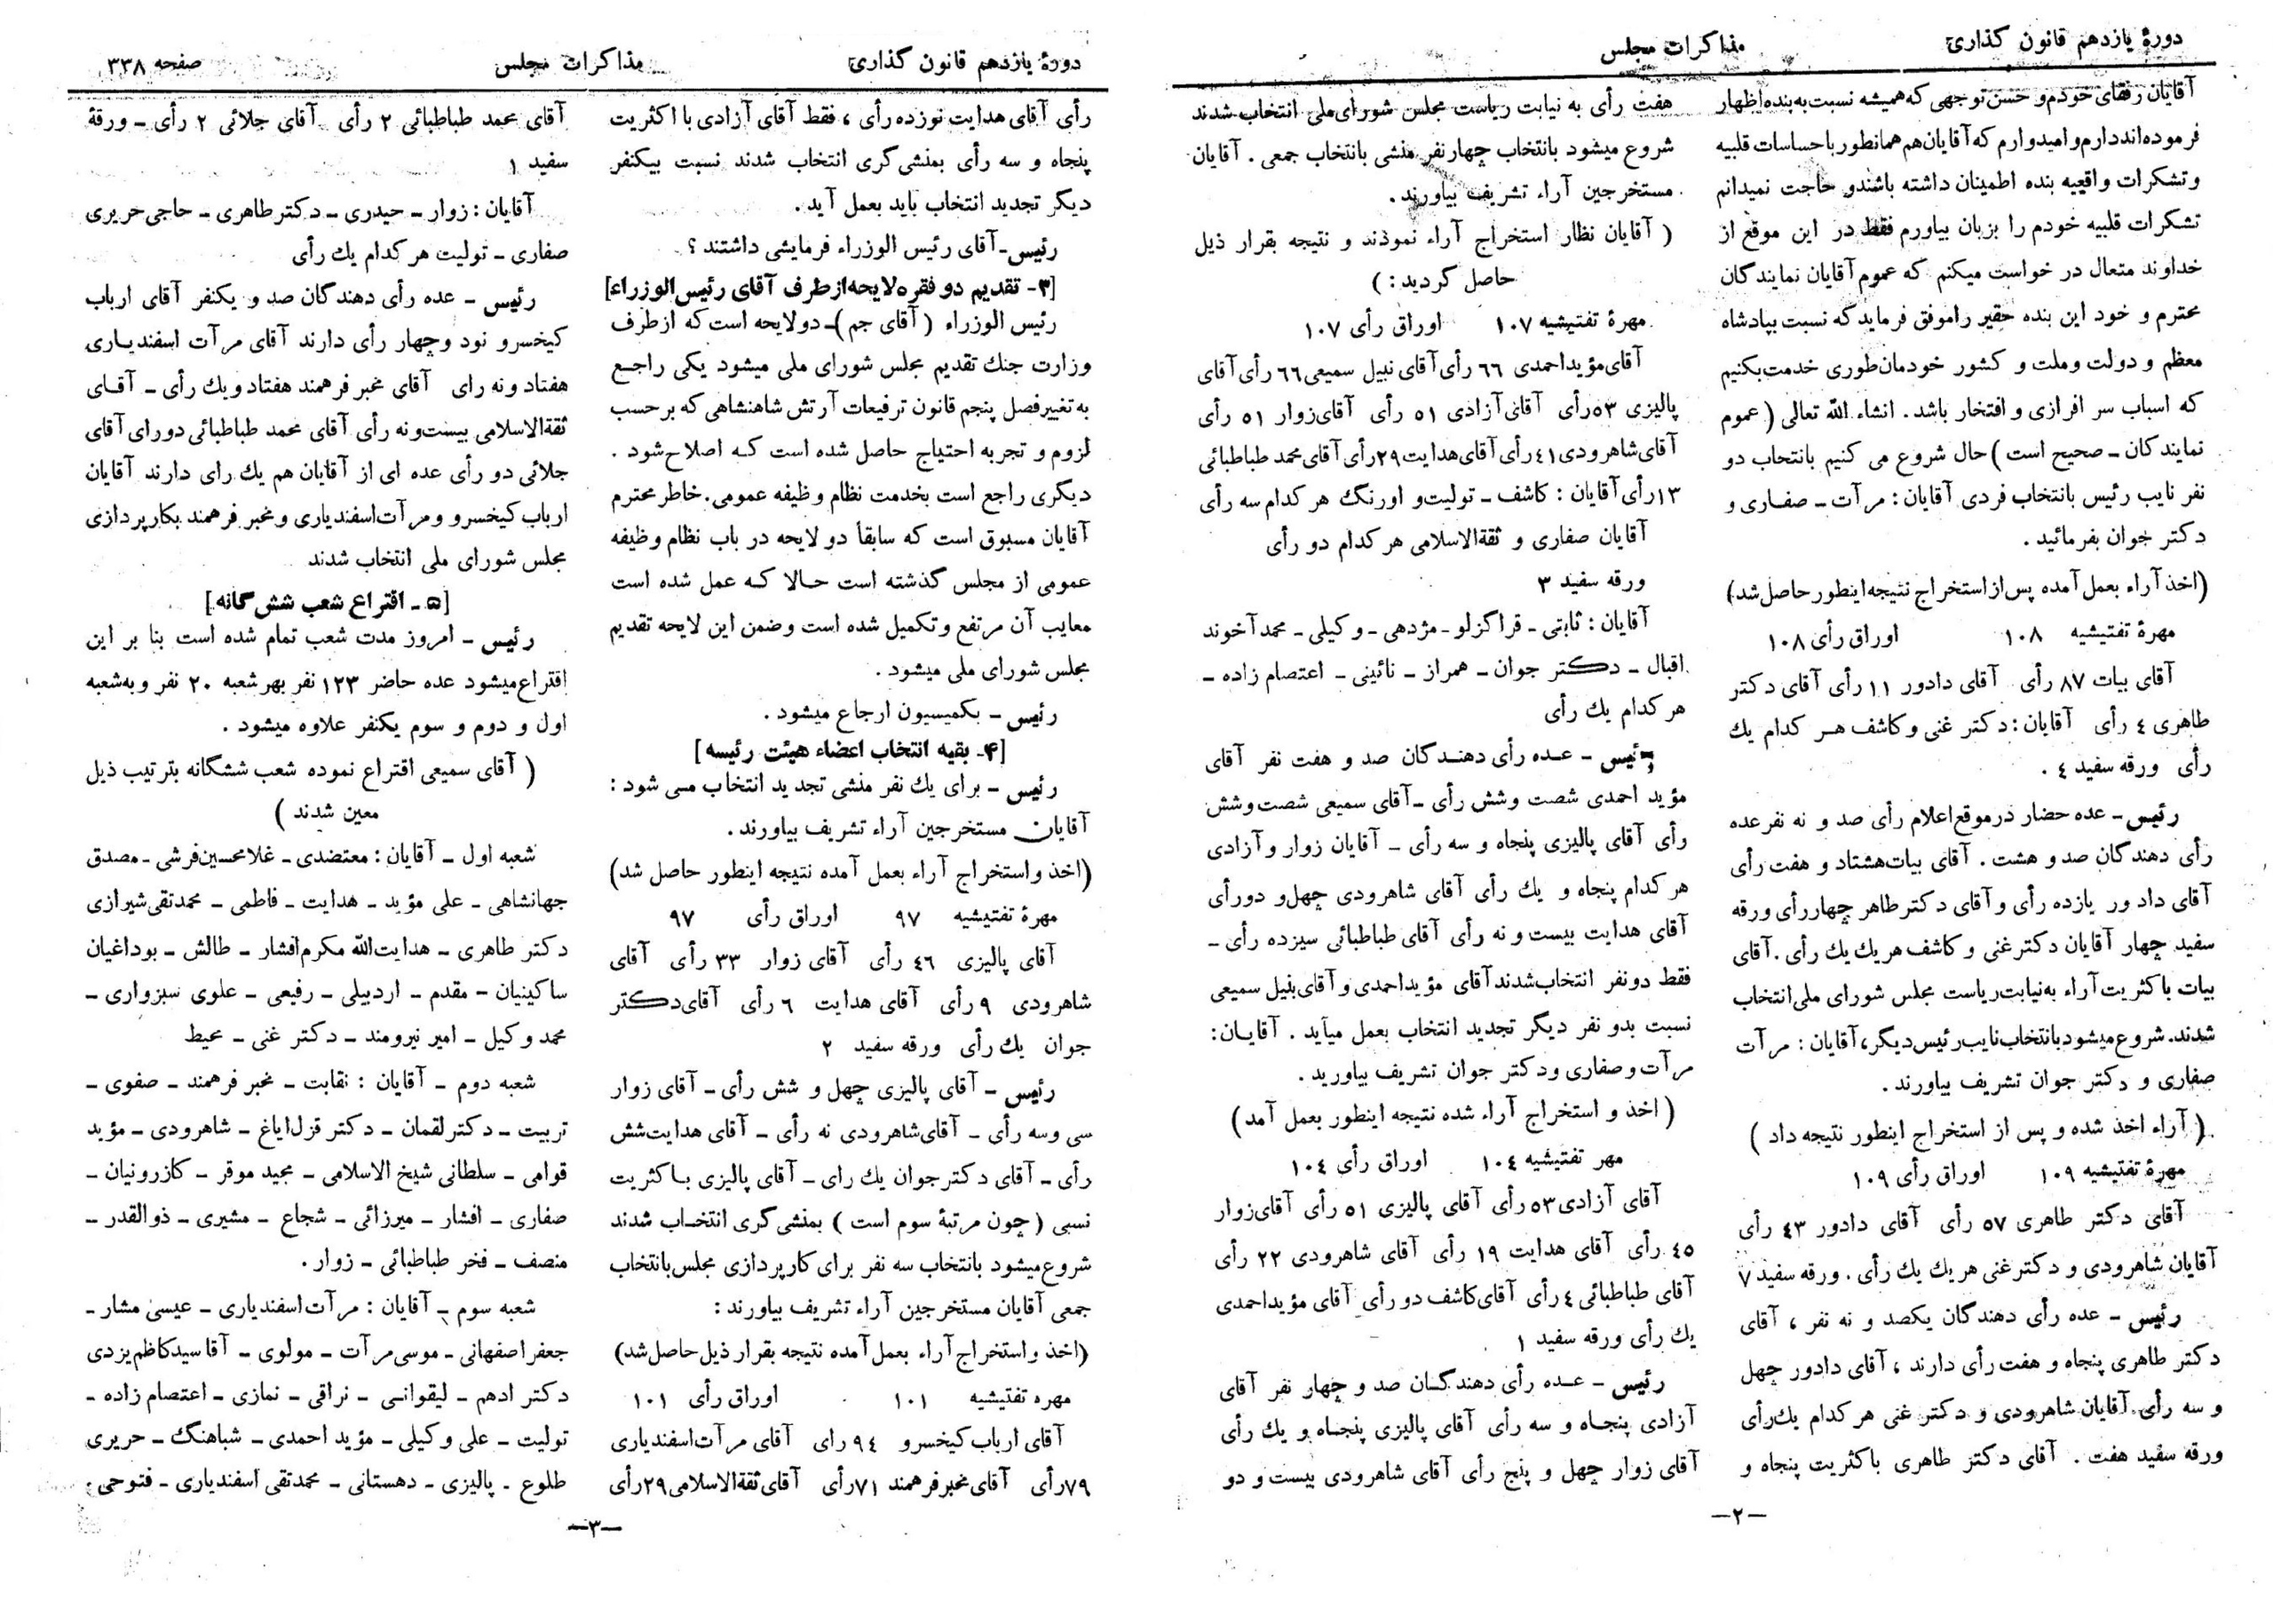 دورهٔ یازدهم قانون گذاری
مذاکرات مجلس
آقایان رفقای خودم و حسن توجهی که همیشه نسبت به بنده اظهار
فرموده‌اند دارم و امیدوارم که آقایان هم همانطور باحساسات قلبیه
و تشکرات واقعیه بنده اطمینان داشته باشند و حاجت نمیدانم
تشکرات قلبیه خودم را بزبان بیاورم فقط در این موقع از
خداوند متعال در خواست میکنم که عموم آقایان نمایندگان
محترم و خود این بنده حقیر را موفق فرماید که نسبت بپادشاه
معظم و دولت و ملت و کشور خودمان طوری خدمت بکنیم
که اسباب سر افرازی و افتخار باشد. انشاء الله تعالی (عموم
نمایندگان ـ صحیح است) حال شروع می کنیم بانتخاب دو
نفر نایب رئیس بانتخاب فردی آقایان: مرآت ـ صفاری و
دکتر جوان بفرمائید.
(اخذ آراء بعمل آمده پس از استخراج نتیجه اینطور حاصل شد)
مهرهٔ تفتیشیه ۱۰۸ اوراق رأی ۱۰۸
آقای بیات ۸۷ رأی آقای دادور ۱۱ رأی آقای دکتر
طاهری ٤ رأی آقایان: دکتر غنی و کاشف هر کدام یك
رأی ورقه سفید ٤ .
رئیس ـ عده حضار در موقع اعلام رأی صد و نه نفر عده
رأی دهندگان صد و هشت. آقای بیات هشتاد و هفت رأی
آقای داد ور یازده رأی و آقای دکتر طاهر چهار رأی ورقه
سفید چهار آقایان دکتر غنی و کاشف هر یك یك رأی. آقای
بیات باکثریت آراء به نیابت ریاست مجلس شورای ملی انتخاب
شدند. شروع میشود بانتخاب نایب رئیس دیگر، آقایان: مرآت
صفاری و دکتر جوان تشریف بیاورند.
(آراء اخذ شده و پس از استخراج اینطور نتیجه داد)
مهرهٔ تفتیشیه ۱۰۹ اوراق رأی ۱۰۹
آقای دکتر طاهری ۵۷ رأی آقای دادور ٤۳ رأی
آقایان شاهرودی و دکتر غنی هر یك یك رأی. ورقه سفید ۷
رئیس ـ عده رأی دهندگان یکصد و نه نفر، آقای
دکتر طاهری پنجاه و هفت رأی دارند، آقای دادور چهل
و سه رأی. آقایان شاهرودی و دکتر غنی هر کدام یك رأی
ورقه سفید هفت. آقای دکتر طاهری باکثریت پنجاه و
هفت رأی به نیابت ریاست مجلس شورای ملی انتخاب شدند
شروع میشود بانتخاب چهار نفر منشی بانتخاب جمعی. آقایان
مستخرجین آراء تشریف بیاورند.
(آقایان نظار استخراج آراء نمودند و نتیجه بقرار ذیل
حاصل گردید:)
مهرهٔ تفتیشیه ۱۰۷ اوراق رأی ۱۰۷
آقای مؤید احمدی ٦٦ رأی آقای نبیل سمیعی ٦٦ رأی آقای
پالیزی ۵۳ رأی آقای آزادی ۵۱ رأی آقای زوار ۵۱ رأی
آقای شاهرودی ٤۱ رأی آقای هدایت ۲۹ رأی آقای محمد طباطبائی
۱۳ رأی آقایان: کاشف ـ تولیت و اورنگ هر کدام سه رأی
آقایان صفاری و ثقةالاسلامی هر کدام دو رأی
ورقه سفید ۳
آقایان: ثابتی ـ قراگزلو ـ مژدهی ـ وکیلی ـ محمد آخوند
اقبال ـ دکتر جوان ـ همراز ـ نائینی ـ اعتصام زاده ـ
هر کدام یك رأی
رئیس ـ عده رأی دهندگان صد و هفت نفر آقای
مؤید احمدی شصت و شش رأی ـ آقای سمیعی شصت و شش
رأی آقای پالیزی پنجاه و سه رأی ـ آقایان زوار و آزادی
هر کدام پنجاه و یك رأی آقای شاهرودی چهل و دو رأی
آقای هدایت بیست و نه رأی آقای طباطبائی سیزده رأی ـ
فقط دو نفر انتخاب شدند آقای مؤید احمدی و آقای بنیل سمیعی
نسبت بدو نفر دیگر تجدید انتخاب بعمل میآید. آقایان:
مرآت و صفاری و دکتر جوان تشریف بیاورید.
(اخذ و استخراج آراء شده نتیجه اینطور بعمل آمد)
مهر تفتیشیه ۱۰٤ اوراق رأی ۱۰٤
آقای آزادی ۵۳ رأی آقای پالیزی ۵۱ رأی آقای زوار
٤۵ رأی آقای هدایت ۱۹ رأی آقای شاهرودی ۲۲ رأی
آقای طباطبائی ٤ رأی آقای کاشف دو رأی آقای مؤید احمدی
یك رأی ورقه سفید ۱
رئیس ـ عده رأی دهندگان صد و چهار نفر آقای
آزادی پنجاه و سه رأی آقای پالیزی پنجاه و یك رأی
آقای زوار چهل و پنج رأی آقای شاهرودی بیست و دو
ـ۲ـ
دورهٔ یازدهم قانون گذاری
مذاکرات مجلس
صفحه ۳۳۸
رأی آقای هدایت نوزده رأی، فقط آقای آزادی با اکثریت
پنجاه و سه رأی بمنشی گری انتخاب شدند نسبت بیکنفر
دیگر تجدید انتخاب باید بعمل آید.
رئیس ـ آقای رئیس الوزراء فرمایشی داشتند؟
[۳ـ تقدیم دو فقره لایحه از طرف آقای رئیس الوزراء]
رئیس الوزراء (آقای جم) ـ دو لایحه است که از طرف
وزارت جنك تقدیم مجلس شورای ملی میشود یکی راجع
به تغییر فصل پنجم قانون ترفیعات آرتش شاهنشاهی که بر حسب
لزوم و تجربه احتیاج حاصل شده است که اصلاح شود.
دیگری راجع است بخدمت نظام وظیفه عمومی. خاطر محترم
آقایان مسبوق است که سابقاً دو لایحه در باب نظام وظیفه
عمومی از مجلس گذشته است حالا که عمل شده است
معایب آن مرتفع و تکمیل شده است و ضمن این لایحه تقدیم
مجلس شورای ملی میشود.
رئیس ـ بکمیسیون ارجاع میشود.
[۴ـ بقیه انتخاب اعضاء هیئت رئیسه]
رئیس ـ برای یك نفر منشی تجدید انتخاب می شود:
آقایان مستخرجین آراء تشریف بیاورند.
(اخذ و استخراج آراء بعمل آمده نتیجه اینطور حاصل شد)
مهرهٔ تفتیشیه ۹۷ اوراق رأی ۹۷
آقای پالیزی ٤٦ رأی آقای زوار ۳۳ رأی آقای
شاهرودی ۹ رأی آقای هدایت ٦ رأی آقای دکتر
جوان یك رأی ورقه سفید ۲
رئیس ـ آقای پالیزی چهل و شش رأی ـ آقای زوار
سی و سه رأی ـ آقای شاهرودی نه رأی ـ آقای هدایت شش
رأی ـ آقای دکتر جوان یك رای ـ آقای پالیزی باکثریت
نسبی (چون مرتبهٔ سوم است) بمنشی گری انتخاب شدند
شروع میشود بانتخاب سه نفر برای کارپردازی مجلس بانتخاب
جمعی آقایان مستخرجین آراء تشریف بیاورند:
(اخذ و استخراج آراء بعمل آمده نتیجه بقرار ذیل حاصل شد)
مهره تفتیشیه ۱۰۱ اوراق رأی ۱۰۱
آقای ارباب کیخسرو ۹٤ رای آقای مرآت اسفندیاری
۷۹ رأی آقای مخبر فرهمند ۷۱ رأی آقای ثقةالاسلامی ۲۹ رأی
آقای محمد طباطبائی ۲ رأی آقای جلائی ۲ رأی ـ ورقهٔ
سفید ۱
آقایان: زوار ـ حیدری ـ دکتر طاهری ـ حاجی حریری
صفاری ـ تولیت هر کدام یك رأی
رئیس ـ عده رأی دهندگان صد و یکنفر آقای ارباب
کیخسرو نود و چهار رأی دارند آقای مرآت اسفندیاری
هفتاد و نه رای آقای مخبر فرهمند هفتاد و یك رأی ـ آقای
ثقةالاسلامی بیست و نه رأی آقای محمد طباطبائی دو رای آقای
جلائی دو رأی عده ای از آقایان هم یك رای دارند آقایان
ارباب کیخسرو و مرآت اسفندیاری و مخبر فرهمند بکارپردازی
مجلس شورای ملی انتخاب شدند
[۵ ـ اقتراع شعب شش گانه]
رئیس ـ امروز مدت شعب تمام شده است بنا بر این
اقتراع میشود عده حاضر ۱۲۳ نفر بهر شعبه ۲۰ نفر و به شعبه
اول و دوم و سوم یکنفر علاوه میشود.
(آقای سمیعی اقتراع نموده شعب ششگانه بترتیب ذیل
معین شدند)
شعبه اول ـ آقایان: معتضدی ـ غلامحسین فرشی ـ مصدق
جهانشاهی ـ علی مؤید ـ هدایت ـ فاطمی ـ محمد تقی شیرازی
دکتر طاهری ـ هدایت الله مکرم افشار ـ طالش ـ بوداغیان
ساکینیان ـ مقدم ـ اردبیلی ـ رفیعی ـ علوی سبزواری ـ
محمد وکیل ـ امیر نیرومند ـ دکتر غنی ـ محیط
شعبه دوم ـ آقایان: نقابت ـ مخبر فرهمند ـ صفوی ـ
تربیت ـ دکتر لقمان ـ دکتر قزل ایاغ ـ شاهرودی ـ مؤید
قوامی ـ سلطانی شیخ الاسلامی ـ مجید موقر ـ کازرونیان ـ
صفاری ـ افشار ـ میرزائی ـ شجاع ـ مشیری ـ ذوالقدر ـ
منصف ـ فخر طباطبائی ـ زوار.
شعبه سوم ـ آقایان: مرآت اسفندیاری ـ عیسی مشار ـ
جعفر اصفهانی ـ موسی مرآت ـ مولوی ـ آقا سید کاظم یزدی
دکتر ادهم ـ لیقوانی ـ نراقی ـ نمازی ـ اعتصام زاده ـ
تولیت ـ علی وکیلی ـ مؤید احمدی ـ شباهنگ ـ حریری
طلوع ـ پالیزی ـ دهستانی ـ محمد تقی اسفندیاری ـ فتوحی
ـ۳ـ